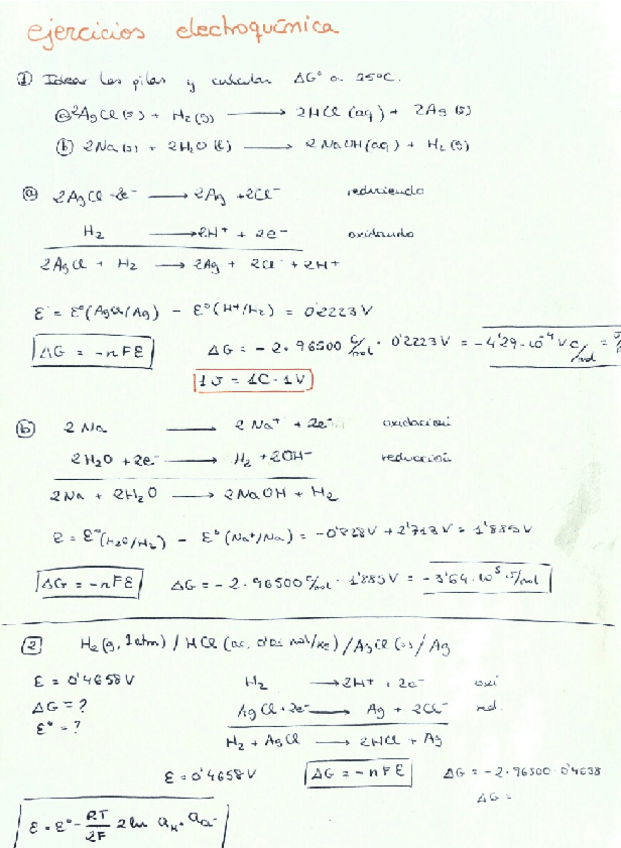 ejercicios electroquímica
① Idear las pilas y calcular ΔG° a 25°C.
ⓐ 2AgCl(s) + H₂(g) ⟶ 2HCl(aq) + 2Ag(s)
ⓑ 2Na(s) + 2H₂O(l) ⟶ 2NaOH(aq) + H₂(g)
ⓐ 2AgCl + 2e⁻ ⟶ 2Ag + 2Cl⁻ reduciendo
H₂ ⟶ 2H⁺ + 2e⁻ oxidando
2AgCl + H₂ ⟶ 2Ag + 2Cl⁻ + 2H⁺
ε = ε°(AgCl/Ag) - ε°(H⁺/H₂) = 0'2223 V
ΔG = -nFε ΔG = -2·96500 C/mol · 0'2223 V = -4'29·10⁻⁴ V C/mol =
1 J = 1C·1V
ⓑ 2Na ⟶ 2Na⁺ + 2e⁻ oxidación
2H₂O + 2e⁻ ⟶ H₂ + 2OH⁻ reducción
2Na + 2H₂O ⟶ 2NaOH + H₂
ε = ε°(H₂O/H₂) - ε°(Na⁺/Na) = -0'828V + 2'713V = 1'885V
ΔG = -nFε ΔG = -2·96500 C/mol · 1'885V = -3'64·10⁵ J/mol
2 H₂(g, 1atm) / HCl (ac, 0'01 mol/kg) / AgCl(s) / Ag
ε = 0'4658 V H₂ ⟶ 2H⁺ + 2e⁻ oxi
ΔG = ? AgCl + 2e⁻ ⟶ Ag + 2Cl⁻ red.
ε° = ? H₂ + AgCl ⟶ 2HCl + Ag
ε = 0'4658 V ΔG = -nFε ΔG = -2·96500·0'4658
ΔG =
ε = ε° - RT/2F 2 ln a_H⁺ · a_Cl⁻